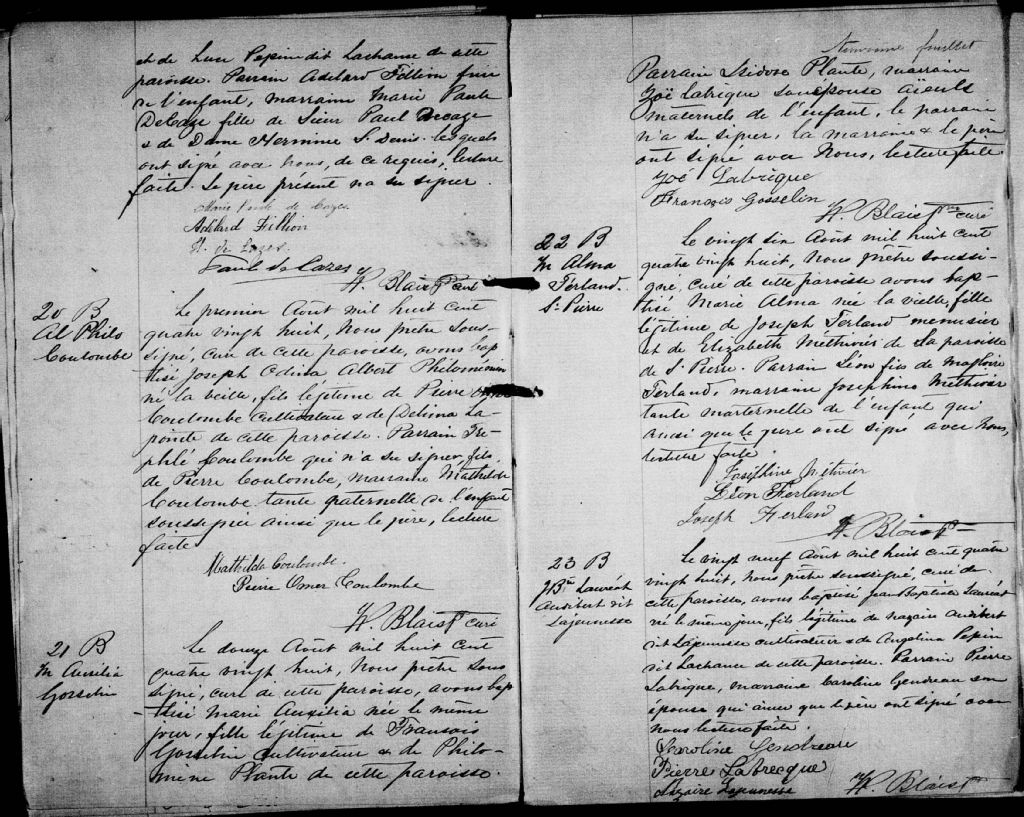 et de Luce Pepin dit Lachance de cette
paroisse. Parrain Adelard Fillion frère
de l'enfant, marraine Marie Paule
DeCaze fille de Sieur Paul Decaze
& de Dame Hermine St Denis lesquels
ont signé avec nous, de ce requis, lecture
faite. Le père présent n'a su signer.
Marie Paule de Cazes
Adélard Fillion
H. de Cazes
Paul de Cazes
H. Blais Ptre curé
20 B
Al Philo
Coulombe
Le premier Août mil huit cent
quatre vingt huit, Nous prêtre sous-
signé, curé de cette paroisse, avons bap
tisé Joseph Albert Philoménin
né la veille, fils légitime de Pierre
Coulombe cultivateur & de Delima La-
pointe de cette paroisse. Parrain Tre-
philé Coulombe qui n'a su signer, fils
de Pierre Coulombe, marraine Mathilde
Coulombe tante paternelle de l'enfant
soussignée ainsi que le père, lecture
faite
Mathilda Coulombe.
Pierre Omer Coulombe
H. Blais Ptre curé
21 B
M Auxilia
Gosselin
Le douze Août mil huit cent
quatre vingt huit, Nous prêtre sous
signé, curé de cette paroisse, avons bap
tisé Marie Auxilia née le même
jour, fille légitime de Francois
Gosselin cultivateur & de Philo-
mène Plante de cette paroisse.
feuillet
Parrain Isidore Plante, marraine
Zoë Labrique son épouse aieuls
maternels de l'enfant, le parrain
n'a su signer, la marraine & le père
ont signé avec Nous, lecture faite
Zoé Labrèque
Francois Gosselin
H. Blais Ptre curé
22 B
M Alma
Ferland.
St Pierre
Le vingt six Août mil huit cent
quatre vingt huit, Nous prêtre soussi-
gné, curé de cette paroisse avons bap-
tisé Marie Alma née la veille, fille
légitime de Joseph Ferland menuisier
et de Elizabeth Méthivier de la paroisse
de St Pierre. Parrain Léon fils de Magloire
Ferland, marraine Josephine Méthivier
tante maternelle de l'enfant qui
ainsi que le père ont signé avec Nous,
lecture faite
Joséphine Métivier
Léon Ferland
Joseph Ferland
H. Blais Ptre
23 B
J Bte Lauréat
Audibert dit
Lajeunesse
Le vingt neuf Août mil huit cent quatre
vingt huit, Nous prêtre soussigné, curé de
cette paroisse, avons baptisé Jean Baptiste Lauréat
né le même jour, fils légitime de Nazaire Audibert
dit Lajeunesse cultivateur & de Angelina Pepin
dit Lachance de cette paroisse. Parrain Pierre
Labrique, marraine Caroline Gendreau son
épouse qui ainsi que le père ont signé avec
nous lecture faite.
Caroline Gendreau
Pierre Labrecque
Nazaire Lajeunesse
H. Blais Ptre